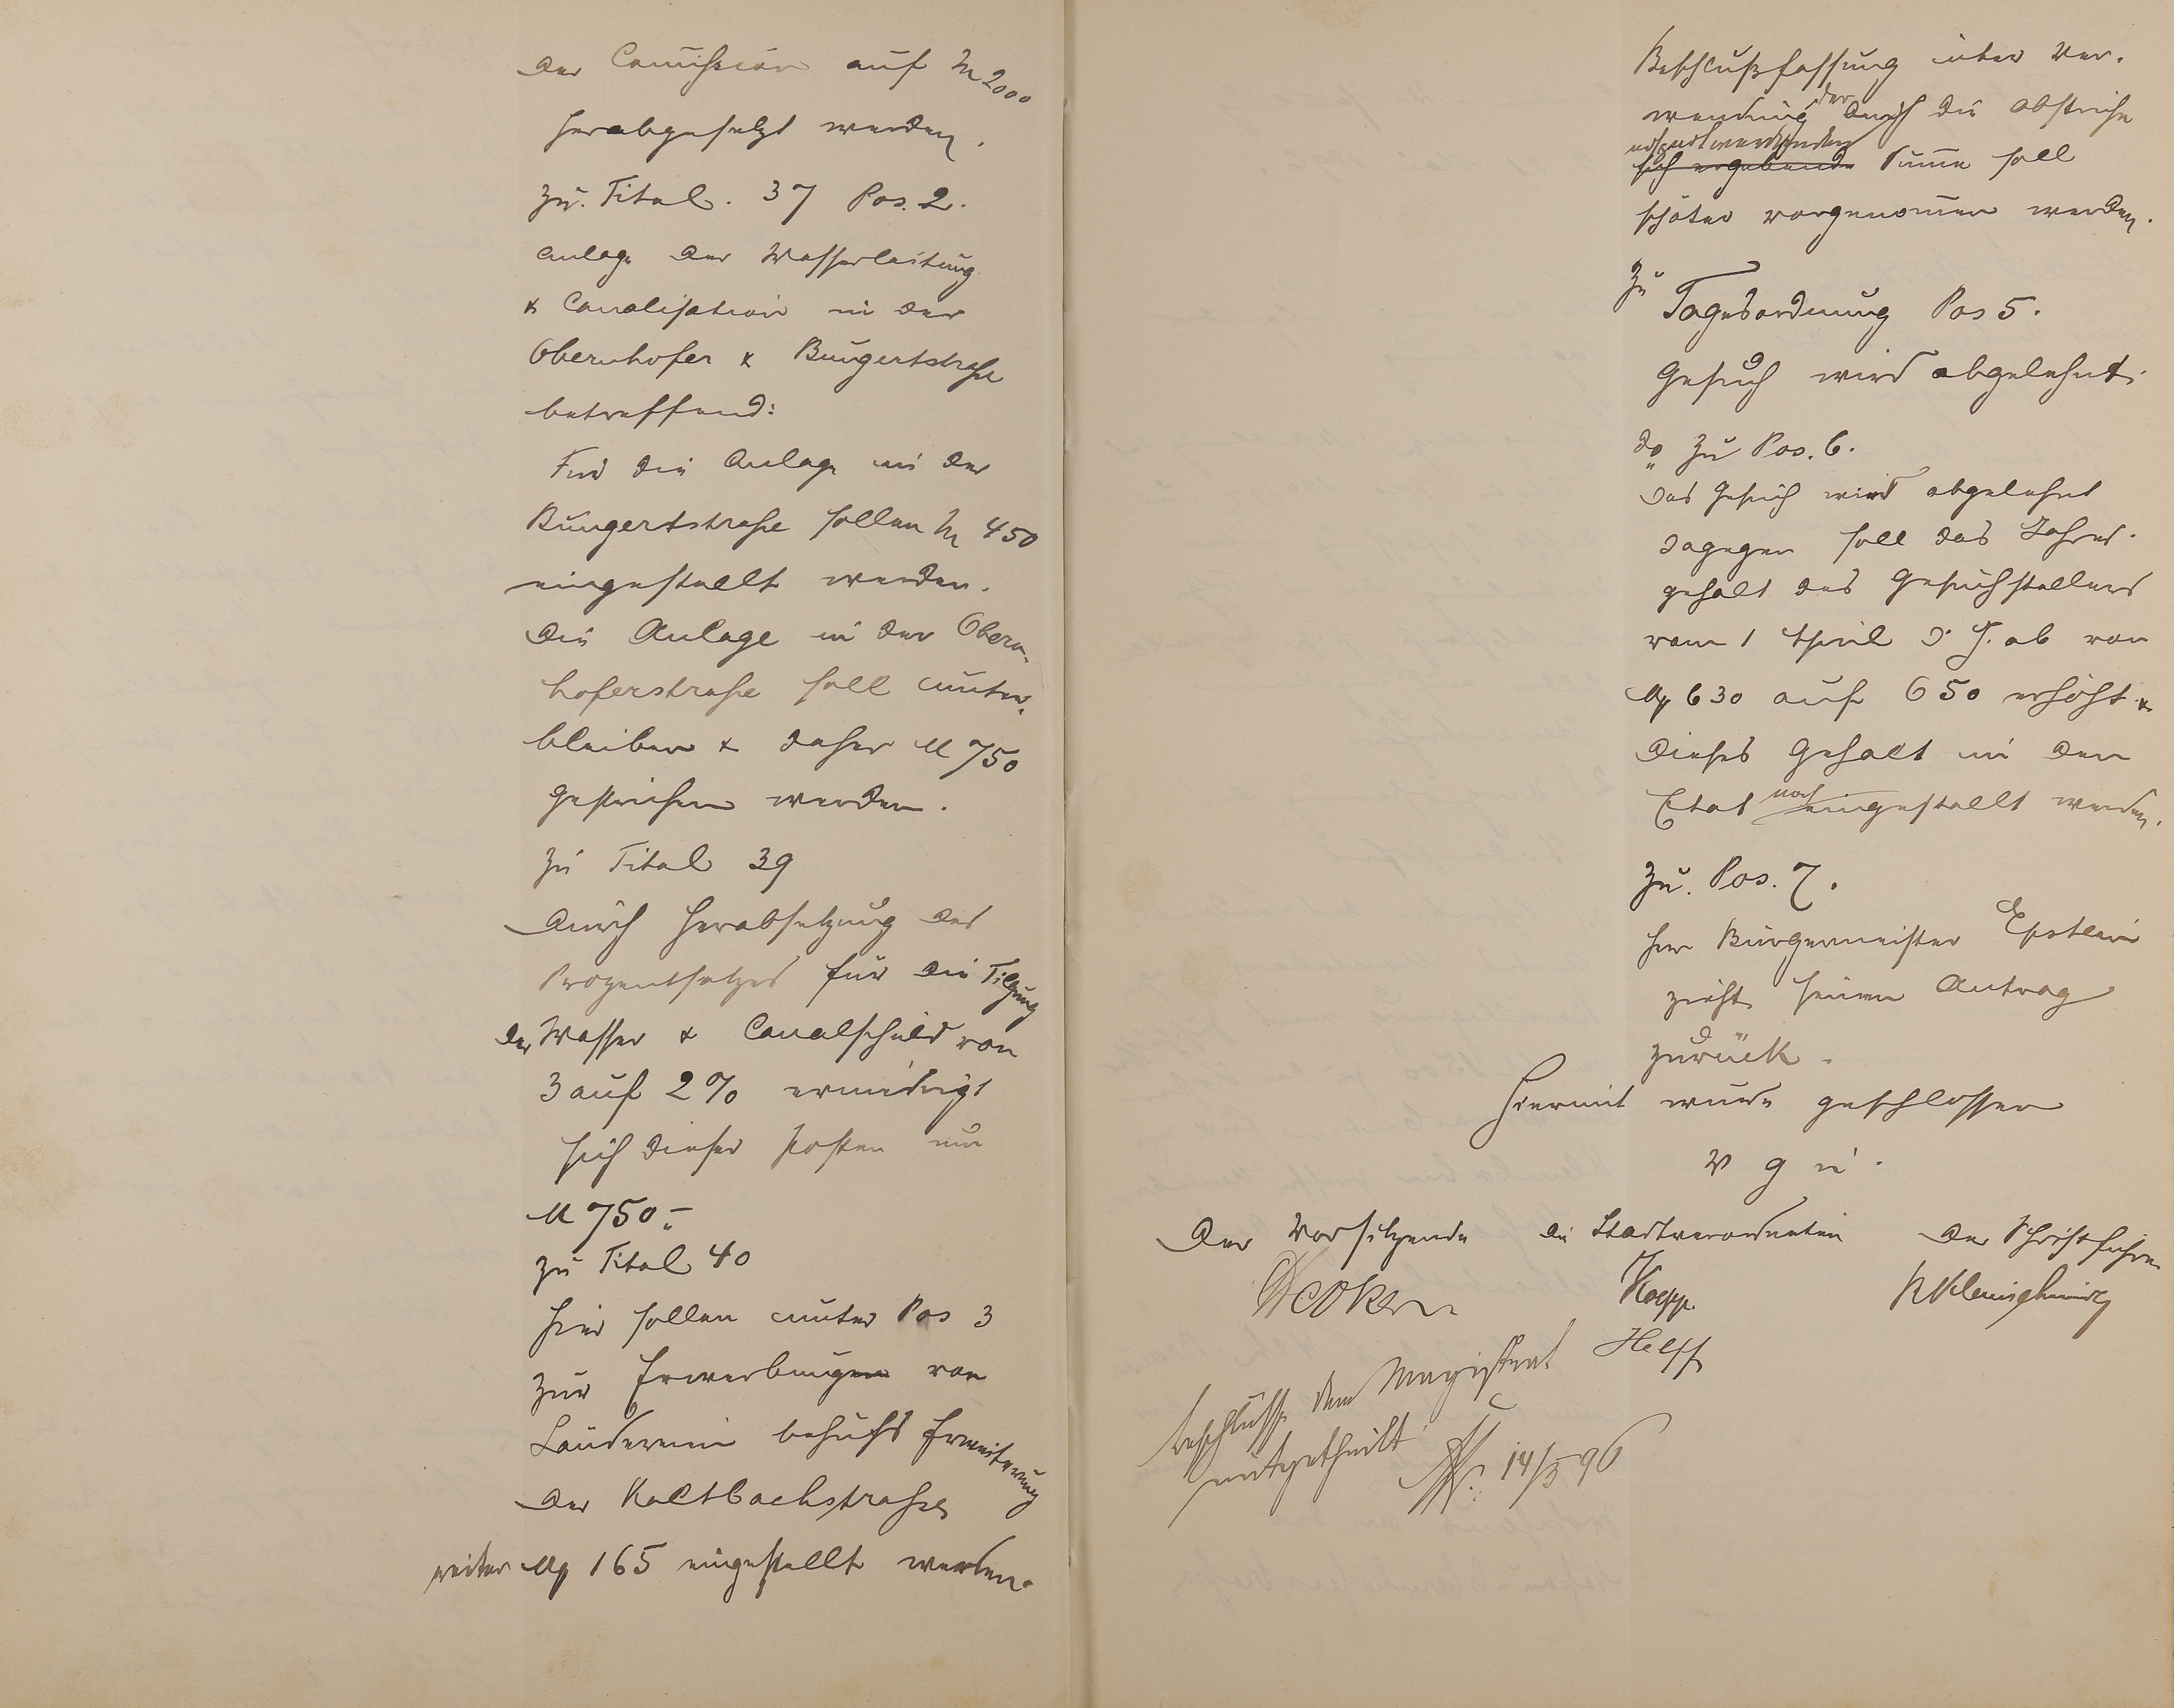 der Commission auf M 2000
herabgesetzt werden.
Zu Titel. 37 Pos. 2.
Anlage der Wasserleitung
& Canalisation in der
Obernhofer & Bungertstraße
betreffend:
Für die Anlage in der
Bungertstraße sollen M 450
eingestellt werden.
Die Anlage in der Obern-
hoferstraße soll unter-
bleiben & daher M 750
gestrichen werden.
Zu Titel 39
Durch Herabsetzung des
Prozentsatzes für die Tilgung
der Wasser & Canalschuld von
3 auf 2 % ermäßigt
sich dieser Posten um
M 750.-
Zu Titel 40
Hier sollen unter Pos 3
zur Erwerbungen von
Ländereien behufs Erweiterung
der Kaltbachstraße
weiter M 165 eingestellt werden.
Beschlußfassung über Ver-
wendung der durch die Abstriche
sich ergebende Summe soll
später vorgenommen werden.
Zu
Tagesordnung Pos 5.
Gesuch wird abgelehnt.
do zu Pos. 6.
Das Gesuch wird abgelehnt
dagegen soll das Jahres-
gehalt des Gesuchstellers
vom 1 April d. J. ab von
M 630 auf 650 erhöht &
dieses Gehalt in den
Etat noch eingestellt werden.
Zu. Pos. 7.
Herr Bürgermeister Epstein
zieht seinen Antrag
zurück.
Hiermit wurde geschlossen
v g u.
Der Vorsitzende die Stadtverordneten Der Schriftführer
Kopp. Kleinschmidt
Helff
Beschlüsse dem Magistrat
mitgetheilt
14/3 96